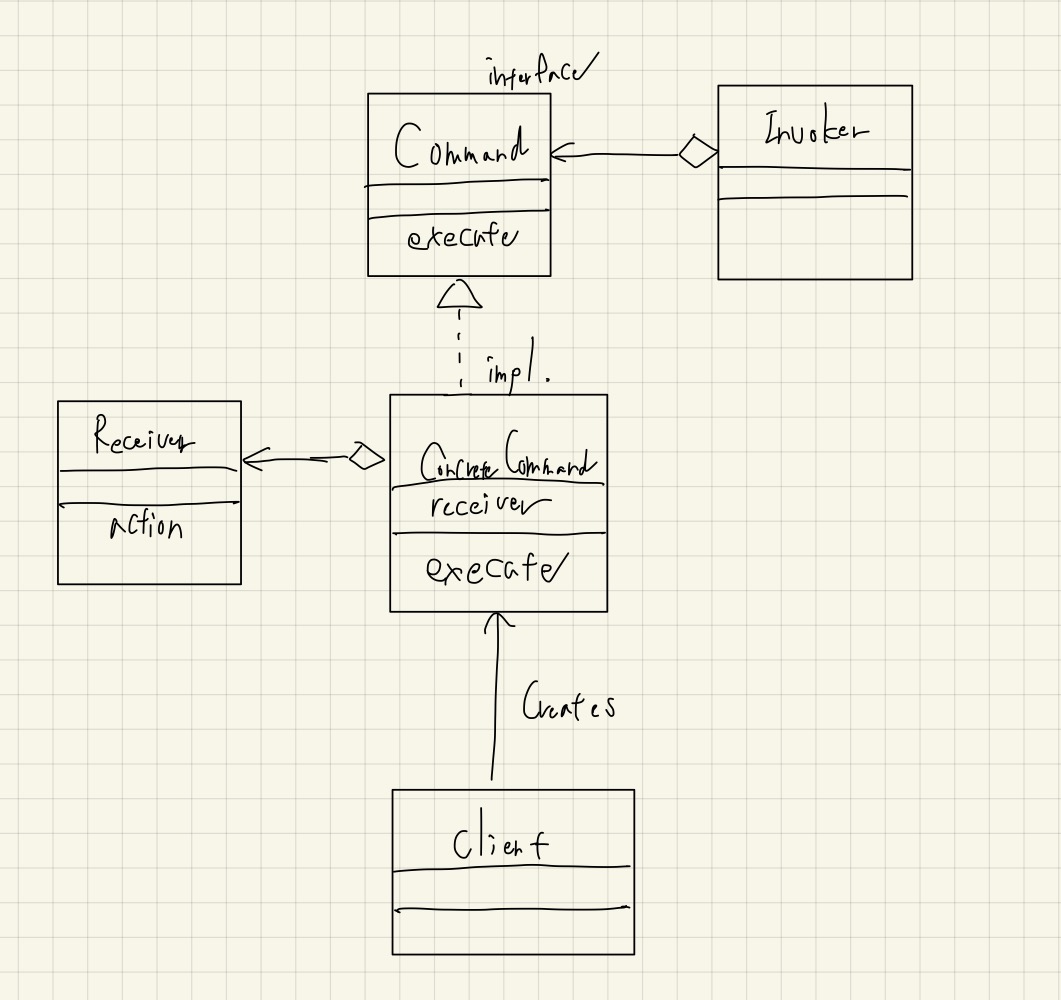 interface
Command
execute
Invoker
impl.
Receiver
action
Concrete Command
receiver
execute
Creates
Client